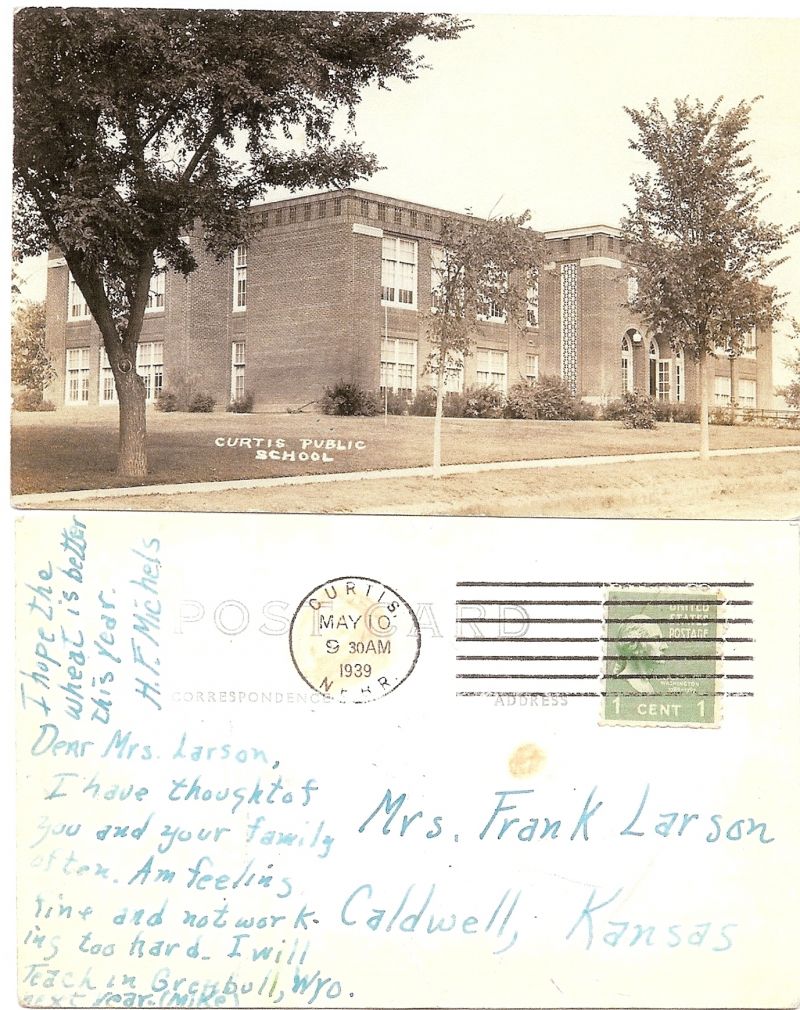 CURTIS PUBLIC
SCHOOL
I hope the
wheat is better
this year.
H.F. Michels
POST CARD
CURTIS.
MAY 10
9 30 AM
1939
NEBR.
UNITED
STATES
POSTAGE
WASHINGTON
1 CENT 1
CORRESPONDENCE
ADDRESS
Dear Mrs. Larson,
I have thought of
you and your family
often. Am feeling
fine and not work-
ing too hard. I will
Teach in Greybull, Wyo.
next year. (Mike)
Mrs. Frank Larson
Caldwell, Kansas